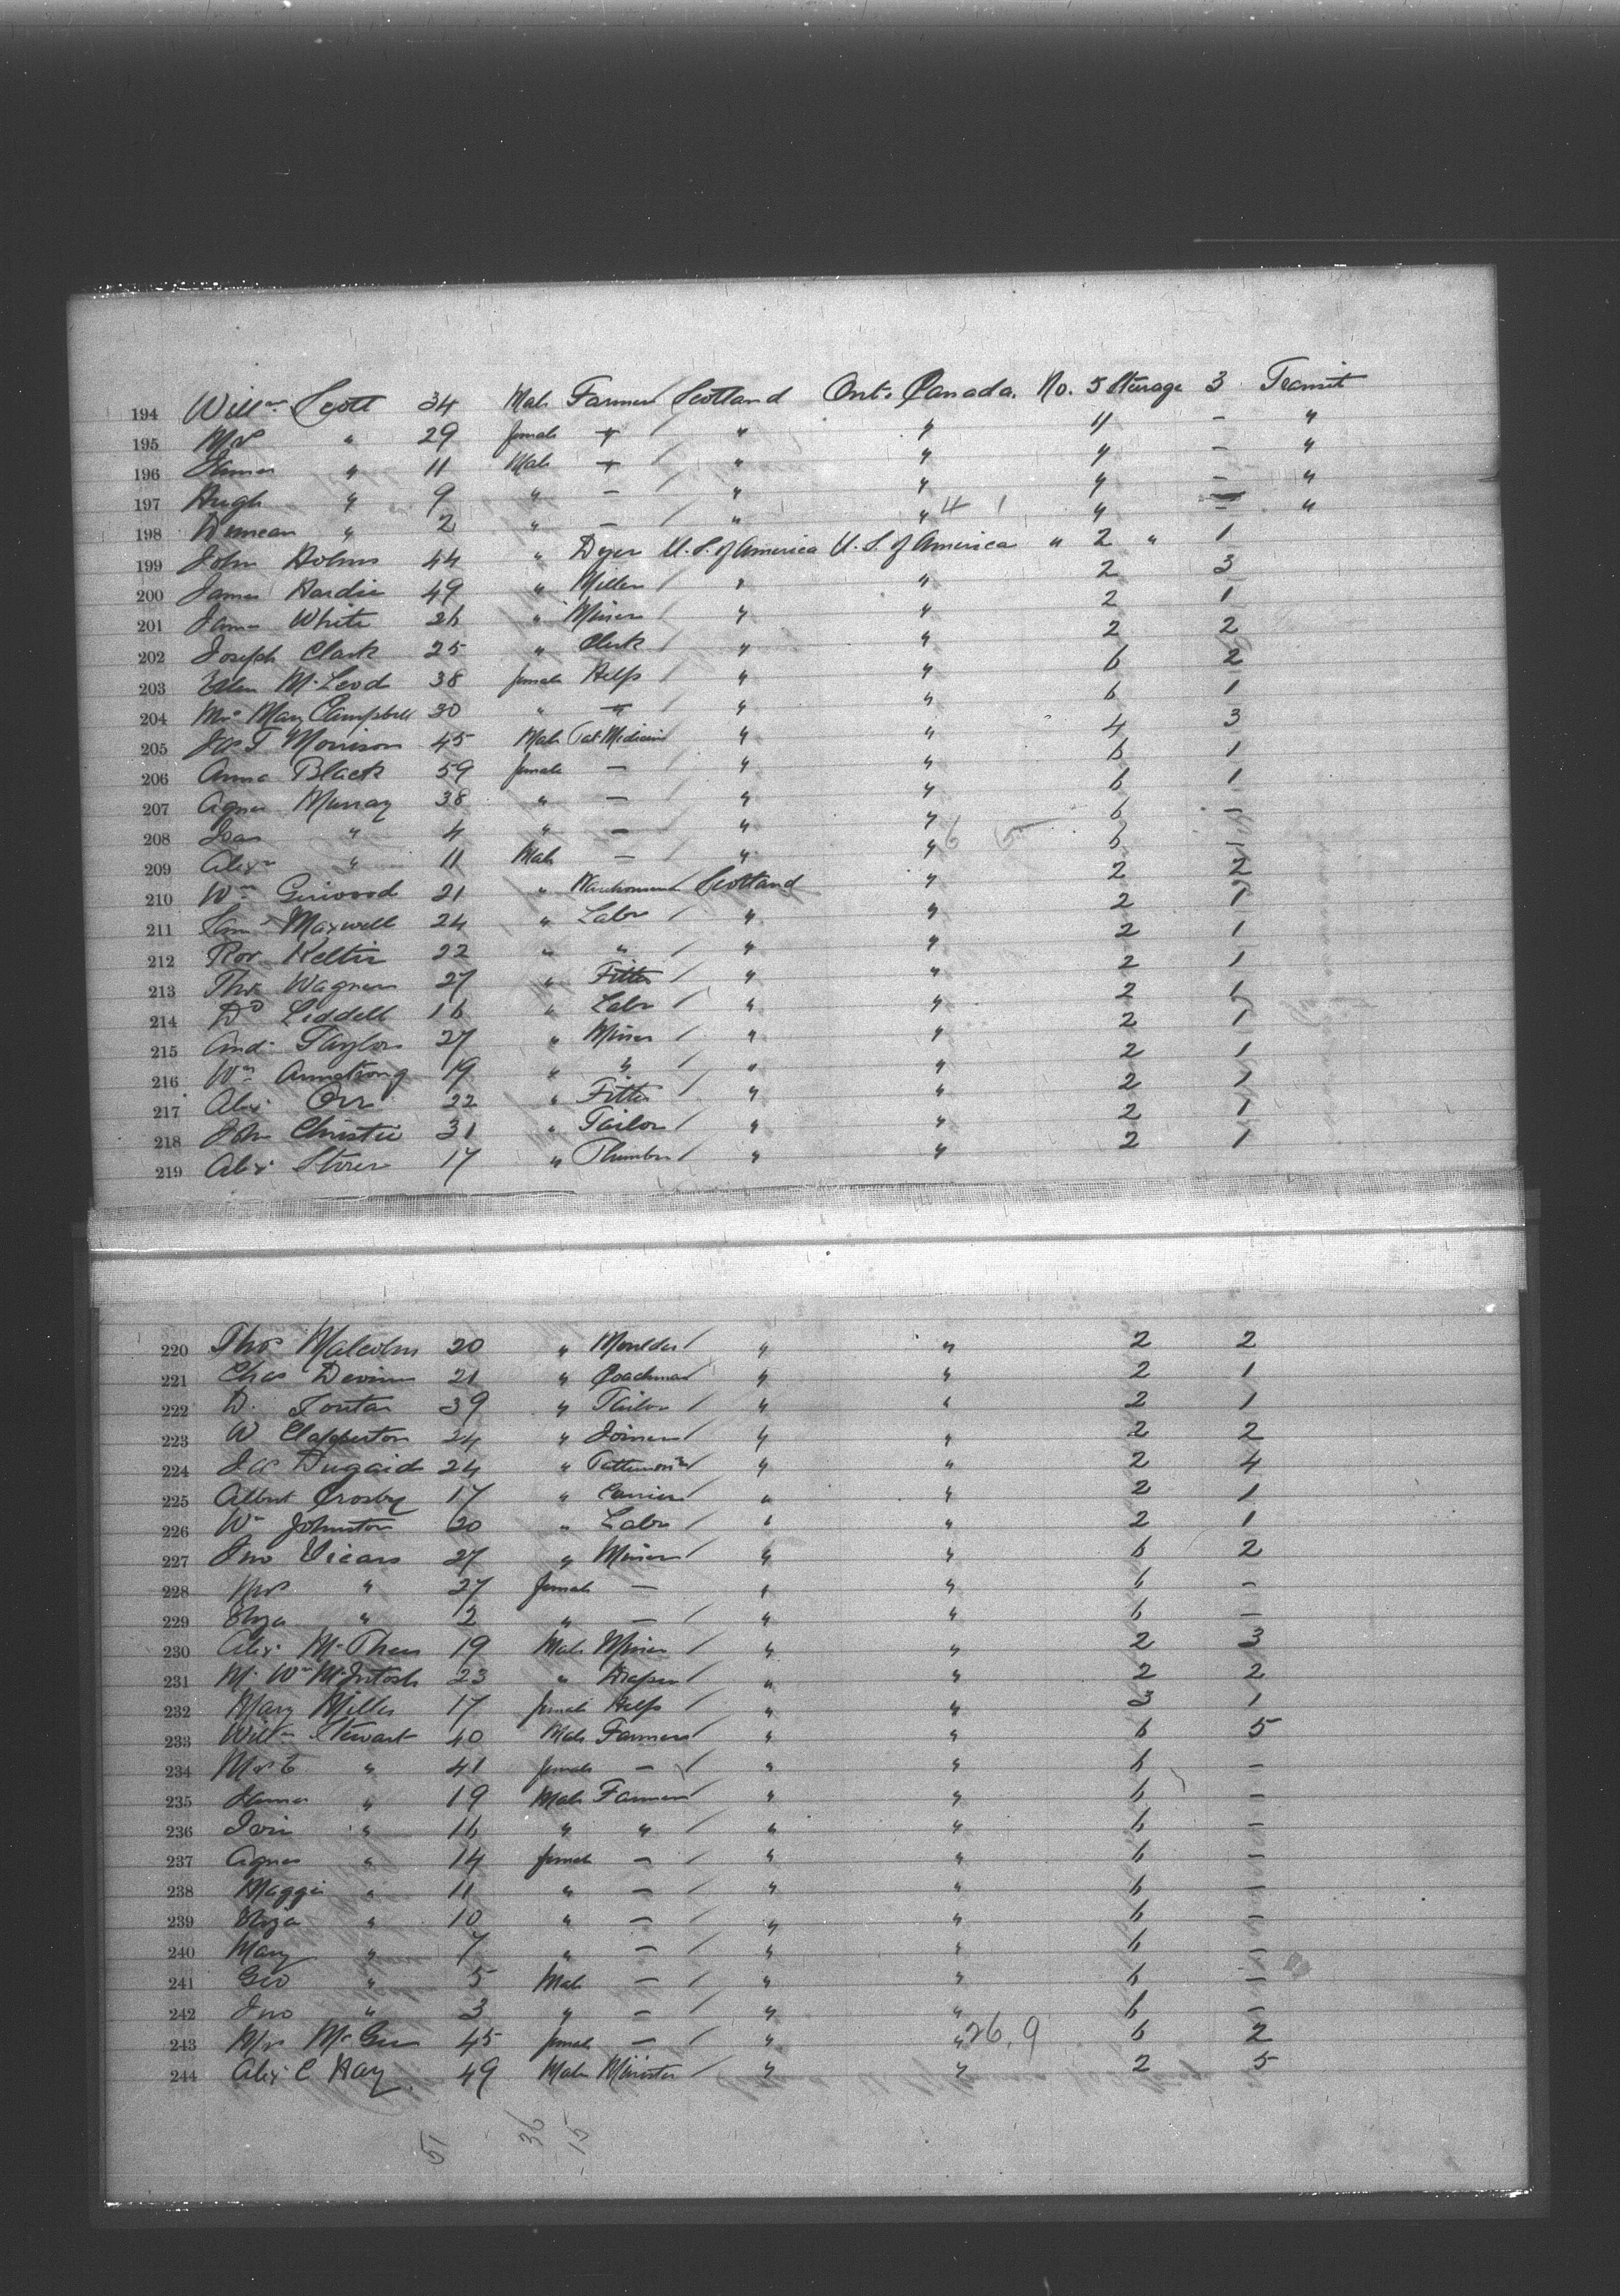 194 Willm Scott 34 Male Farmer / Scotland Ont. Canada. No. 5 Sturage 3 Transit
195 Mrs " 29 female " / " " " - "
196 James " 11 Male " / " " " - "
197 Hugh " 9 " - / " " " - "
198 Duncan " 2 " - / " " 4 1 " - "
199 John Holms 44 " Dyer U.S. of America U.S. of America " 2 " 1
200 James Hardie 49 " Miller / " " 2 3
201 James White 26 " Miner / " " 2 1
202 Joseph Clark 25 " Clerk / " " 2 2
203 McLeod 38 female Help / " " 6 2
204 Mrs Mary Campbell 30 " " / " " 6 1
205 Jas T Morrison 45 Male Pat Medicine " " 4 3
206 Anna Black 59 female - " " 6 1
207 Agnes Murray 38 " - " " 6 1
208 " 4 " - " " 6 -
209 Alexr " 11 Male - " " 6 5 6 -
210 Wm Girwood 21 " Warehouseman Scotland " 2 2
211 Saml Maxwell 24 " Labr / " " 2 1
212 Rob Keltie 22 " " / " " 2 1
213 Thos Wagner 27 " Fitter / " " 2 1
214 Dd Liddell 16 " Labr / " " 2 1
215 And. Taylor 27 " Miner / " " 2 1
216 Wm Armstrong 19 " " / " " 2 1
217 Alex. Orr 22 " Fitter / " " 2 1
218 John Christie 31 " Tailor / " " 2 1
219 Alex. Storer 17 " Plumber / " " 2 1
220 Thos Malcolm 20 " Moulder / " " 2 2
221 Chas Devine 21 " Coachman " " 2 1
222 D. 39 " Tailor / " " 2 1
223 W Clapperton 24 " Joiner / " " 2 2
224 Jas Dugaid 24 " " " 2 4
225 Albert Crosby 17 " Carrier / " " 2 1
226 Wm Johnston 20 " Labr / " " 2 1
227 Jno Vicars 27 " Miner / " " 6 2
228 Mrs " 27 female - " " 6 -
229 Eliza " 2 " - / " " 6 -
230 Alex. 19 Male Miner / " " 2 3
231 Mr Wm McIntosh 23 " Draper / " " 2 2
232 Mary Miller 17 female Help / " " 3 1
233 Willm Stewart 40 Male Farmer / " " 6 5
234 Mrs " 41 female - " " 6 -
235 James " 19 Male Farmer " " 6 -
236 " 16 " " / " " 6 -
237 Agnes " 14 female - " " 6 -
238 Maggie " 11 " - / " " 6 -
239 Eliza " 10 " - / " " 6 -
240 Mary " 7 " - / " " 6 -
241 Geo " 5 Male - / " " 6 -
242 Jno " 3 " - / " " 6 -
243 Mrs McGee 45 female - / " " 26.9 6 2
244 Alex C Hay. 49 Male Minister / " " 2 5
51 36 15